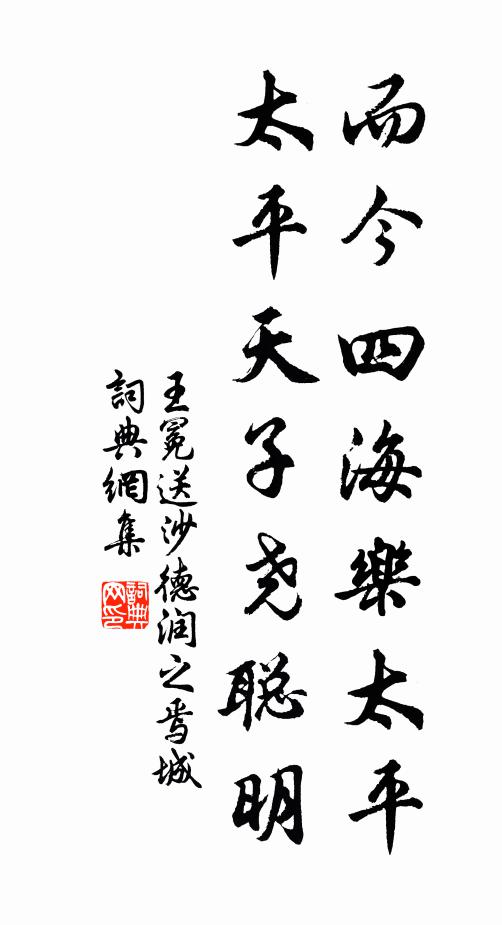 而今四海樂太平
太平天子尧聪明
王冕送沙德润之焉城
詞典網集
詞典网印